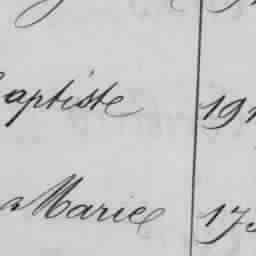 aptiste 19
a Marie 173